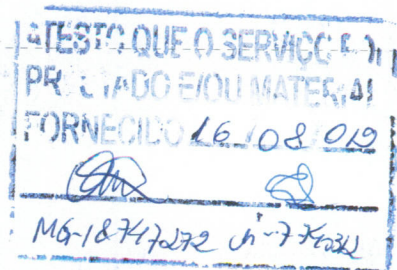 ATESTO QUE O SERVIÇO F
PRESTADO E/OU MATERIAL
FORNECIDO 16/08/019
MG-18747272